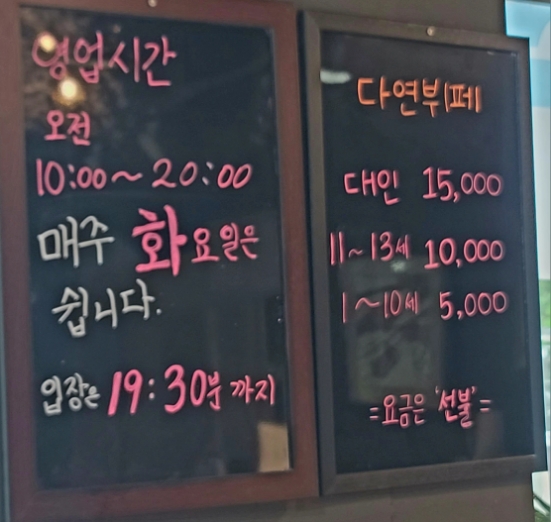 영업시간
오전
10:00~20:00
매주 화요일은
쉽니다.
입장은 19:30분 까지
다연부페
대인 15,000
11~13세 10,000
1~10세 5,000
=요금은 '선불'=